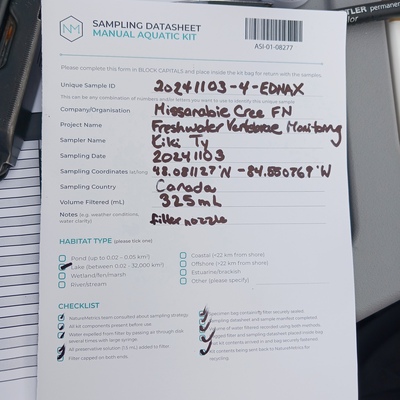 NM
SAMPLING DATASHEET
MANUAL AQUATIC KIT
ASI-01-08277
Please complete this form in BLOCK CAPITALS and place inside the kit bag for return with the samples.
Unique Sample ID 20241103-4-EDNAX
This can be any combination of numbers and/or letters you want to use to identify this unique sample
Company/Organisation Missanabie Cree FN
Project Name Freshwater Vertebrae Monitoring
Sampler Name Kiki Ty
Sampling Date 20241103
Sampling Coordinates lat/long 48.081127°N -84.550769°W
Sampling Country Canada
Volume Filtered (mL) 325mL
Notes (e.g. weather conditions, water clarity) filter nozzle
HABITAT TYPE (please tick one)
Pond (up to 0.02 - 0.05 km²)
Lake (between 0.02 - 32,000 km²)
Wetland/fen/marsh
River/stream
Coastal (<22 km from shore)
Offshore (>22 km from shore)
Estuarine/brackish
Other (please specify)
CHECKLIST
NatureMetrics team consulted about sampling strategy
All kit components present before use
Water expelled from filter by pushing air through disk several times with large syringe.
All preservative solution (1.5 mL) added to filter
Filter capped on both ends.
Specimen bag containing filter securely sealed
Sampling datasheet and sample manifest completed
Volume of water filtered recorded using both methods
Capped filter and sampling datasheet placed inside
Kit contents being sent back to NatureMetrics for recycling.